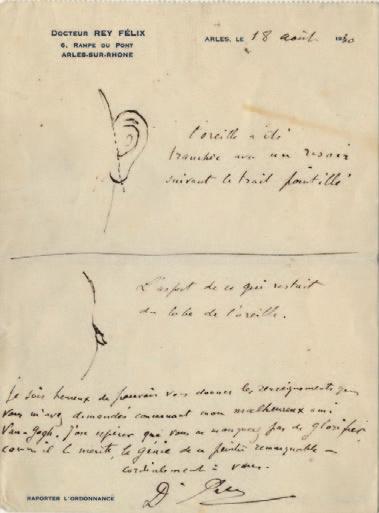 DOCTEUR REY FÉLIX
6, RAMPE DU PONT
ARLES-SUR-RHONE
ARLES, LE 18 août 1930
l'oreille a été
tranchée avec un rasoir
suivant le trait pointillé
L'aspect de ce qui restait
du lobe de l'oreille.
Je suis heureux de pouvoir vous donner les renseignements que
vous m'avez demandés concernant mon malheureux ami
Van-Gogh. J'ose espérer que vous ne manquerez pas de glorifier
comme il le mérite, le génie de ce peintre remarquable -
cordialement à vous.
Dr Rey
RAPORTER L'ORDONNANCE